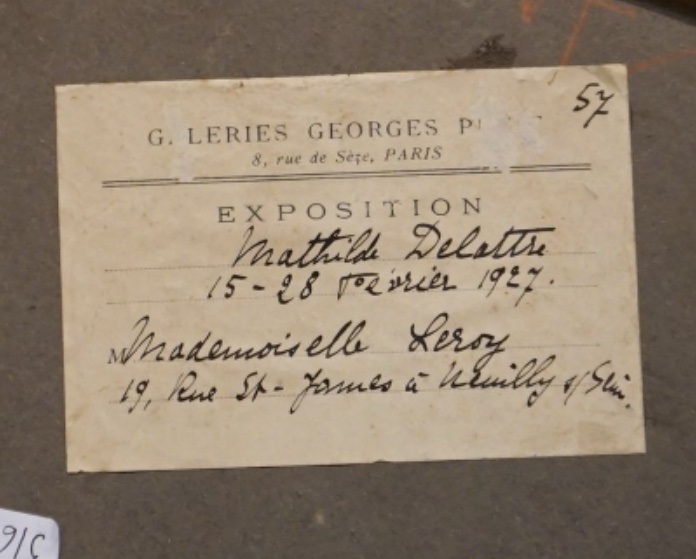 57
G. LERIES GEORGES P
8, rue de Sèze, PARIS
EXPOSITION
Mathilde Delattre
15-28 Février 1927.
M Mademoiselle Leroy
19, Rue St-James à Neuilly s/Sein.